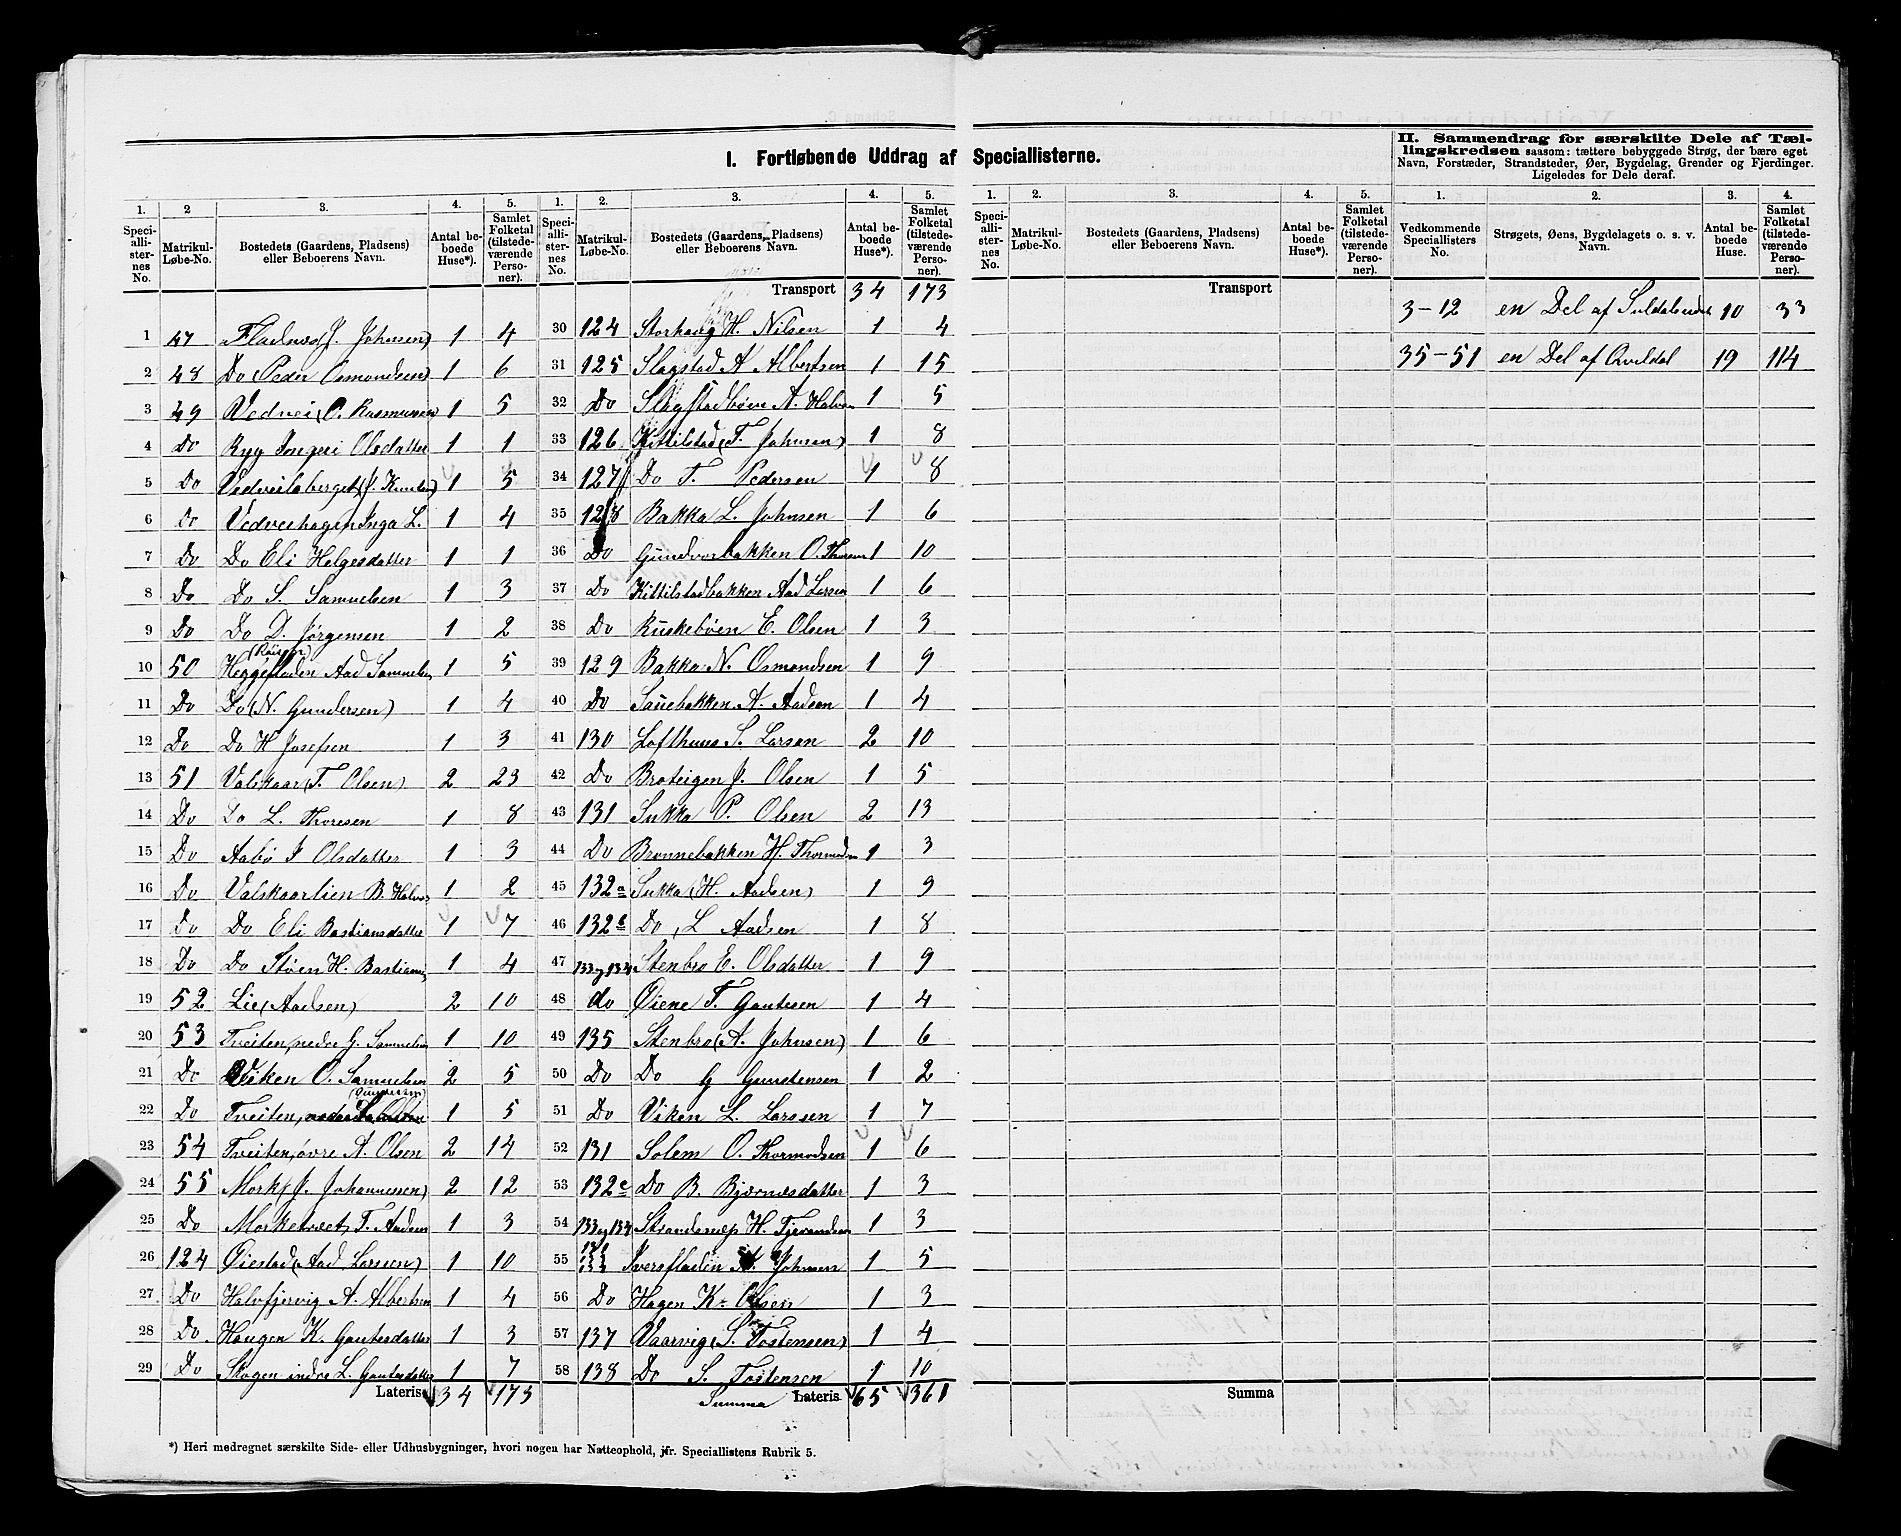 I. Fortløbende Uddrag af Speciallisterne.
II. Sammendrag for særskilte Dele af Tæl-
lingskredsen saasom: tættere bebyggede Strøg, der bære eget
Navn, Forstæder, Strandsteder, Øer, Bygdelag, Grender og Fjerdinger.
Ligeledes for Dele deraf.
1. 2 3. 4. 5.
Speci-alli-ster-nes No. Matrikul-Løbe-No. Bostedets (Gaardens, Pladsens) eller Beboerens Navn. Antal be-boede Huse*). Samlet Folketal (tilstede-værende Perso-ner).
1 47 Fladnes (J. Johnsen) 1 4
2 48 Do (Peder Osmondsen) 1 6
3 49 Vedvei (O. Rasmussen 1 5
4 Do Ryg Ingeri Olsdatter 1 1
5 Do Vedveisberget (J. Knuts) 1 5
6 Do Vedveihagen Inga L. 1 4
7 Do Do Eli Helgesdatter 1 1
8 Do Do S. Samuelsen 1 3
9 Do Do D. Jørgensen 1 2
10 50 Heggefladen Aad Samuelsen 1 5
11 Do Do (N. Gundersen) 1 4
12 Do Do H Josefsen 1 3
13 51 Valskaar (T. Olsen) 2 23
14 Do Do L. Thoresen 1 8
15 Do Aabø I Olsdatter 1 3
16 Do Valskaarlien B. Halvor 1 2
17 Do Do Eli Bastiansdatter 1 7
18 Do Do Støen H. Bastians 1 4
19 52 Lie (Aadsen) 2 10
20 53 Tveiten, nedre G. Samuelsen 1 10
21 Do Viken O. Samuelsen 2 5
22 Do Tveiten, (Gundersen) 1 5
23 54 Tveiten, øvre A. Olsen 2 14
24 55 Mork (J. Johannessen) 2 12
25 Do Morketræet, T. Aadsen 1 3
26 124 Øiestad (Aad Larssen) 1 10
27 Do Halvfjervig A. Albertsen 1 4
28 Do Haugen K. Gautesdatter 1 3
29 Do Skogen indre L. Gautesdatter 1 7
Lateris 34 173
1. 2. 3. 4. 5.
Speci-alli-ster-nes No. Matrikul-Løbe-No. Bostedets (Gaardens, Pladsens) eller Beboerens Navn. Antal be-boede Huse*). Samlet Folketal (tilstede-værende Perso-ner).
Transport 34 173
30 124 Storhaug H. Nilsen 1 4
31 125 Slagstad A Albertsen 1 15
32 Do Slagstadbøen A. Halvor 1 5
33 126 Kittilstad (T. Johnsen) 1 8
34 127 Do T. Pedersen 1 8
35 128 Bakka L. Johnsen 1 6
36 Do Gundvorbakken O. Thores 1 10
37 Do Kittilstadbakken Aad Larsen 1 6
38 Do Ruskebøen E. Olsen 1 3
39 129 Bakka N. Osmondsen 1 9
40 Do Sauebakken A. Aadsen 1 4
41 130 Lofthuus S. Larsen 2 10
42 Do Broteigen J. Olsen 1 5
43 131 Sukka P. Olsen 2 13
44 Do Brønnebakken H. Thormodsen 1 3
45 132a Sukka (H. Aadsen) 1 9
46 132b Do, L Aadsen 1 8
47 133 og 134 Stenbro E. Olsdatter 1 9
48 do Øiene T. Gautesen 1 4
49 135 Stenbro (A. Johnsen) 1 6
50 Do Do G Gundtensen 1 2
51 Do Viken L. Larssen 1 7
52 131 Solem O. Thormodsen 1 6
53 132c Do B. Bjørnæsdatter 1 3
54 133 og 134 Strandsnæs H. Tjerandsen 1 3
55 Iversfladin A. Johnsen 1 5
56 Do Hagen K. Olsen 1 3
57 137 Vaarvig (S. Tostensen) 1 4
58 138 Do S. Tostensen 1 10
Summa Lateris 65 361
*) Heri medregnet særskilte Side- eller Udhusbygninger, hvori nogen har Natteophold, jfr. Speciallistens Rubrik 5.
1. 2. 3. 4. 5.
Speci-alli-ster-nes No. Matrikul-Løbe-No. Bostedets (Gaardens, Pladsens) eller Beboerens Navn. Antal be-boede Huse*). Samlet Folketal (tilstede-værende Perso-ner).
Transport
Summa
1. 2. 3. 4.
Vedkommende Speciallisters No. Strøgets, Øens, Bygdelagets o. s. v. Navn. Antal be-boede Huse. Samlet Folketal (tilstede-værende Perso-ner).
3-12 en Del af Suldalseidet 10 33
35-51 en Del af Qvildal 19 114